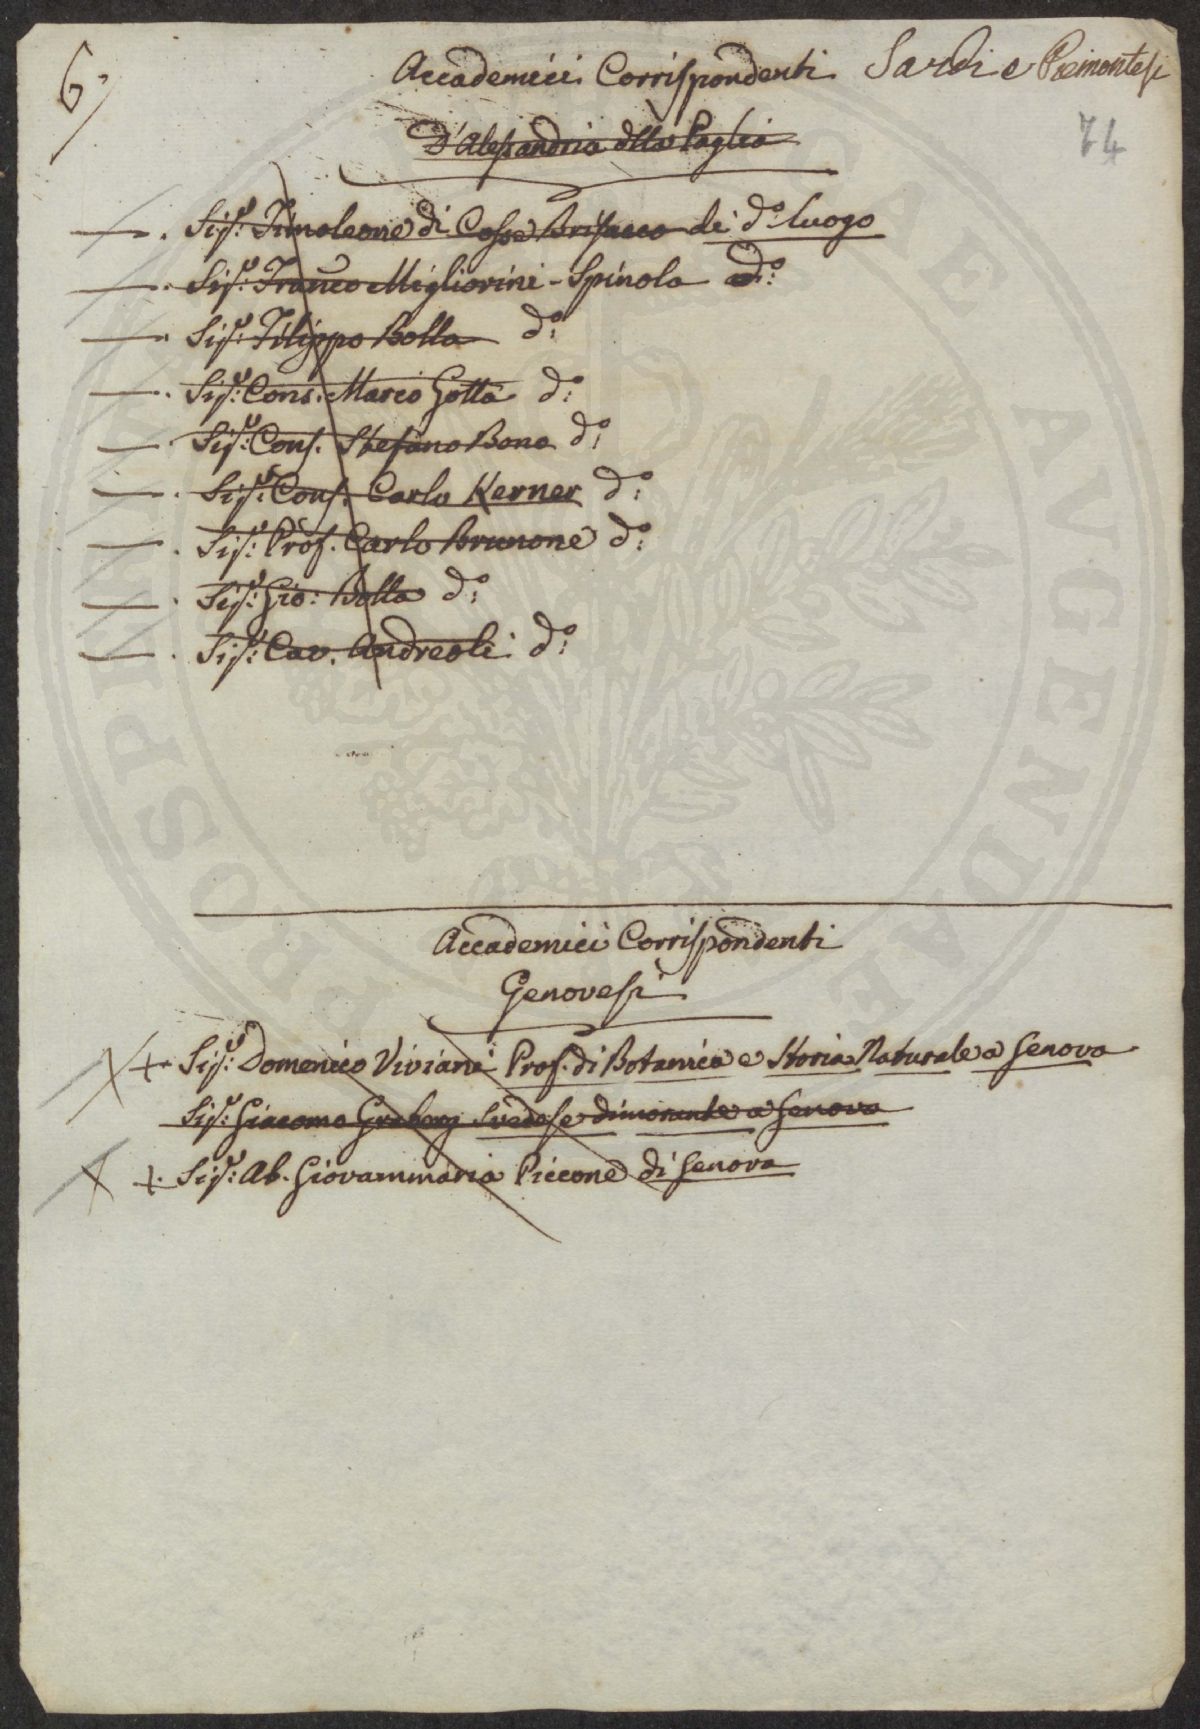 6.
Accademici Corrispondenti Sardi e Piemontesi
74
D'Alessandria della Paglia
Sigr: Timoleone di Cosse Brisacco di do: luogo
Sigr: Franco Migliorini-Spinola do:
Sigr: Filippo Bolla do:
Sigr: Cons: Marco Gotta do:
Sigr: Cons. Stefano Bono do:
Sigr: Cons. Carlo Kerner do:
Sigr: Prof. Carlo Brunone do:
Sigr: Gio: Bolla do:
Sigr: Cav. Andreoli do:
Accademici Corrispondenti
Genovesi
+ Sigr: Domenico Viviani Prof. di Botanica e Storia Naturale a Genova
Sigr: Giacomo Graberg Svedese dimorante a Genova
+ Sigr: Ab. Giovammaria Piccone di Genova